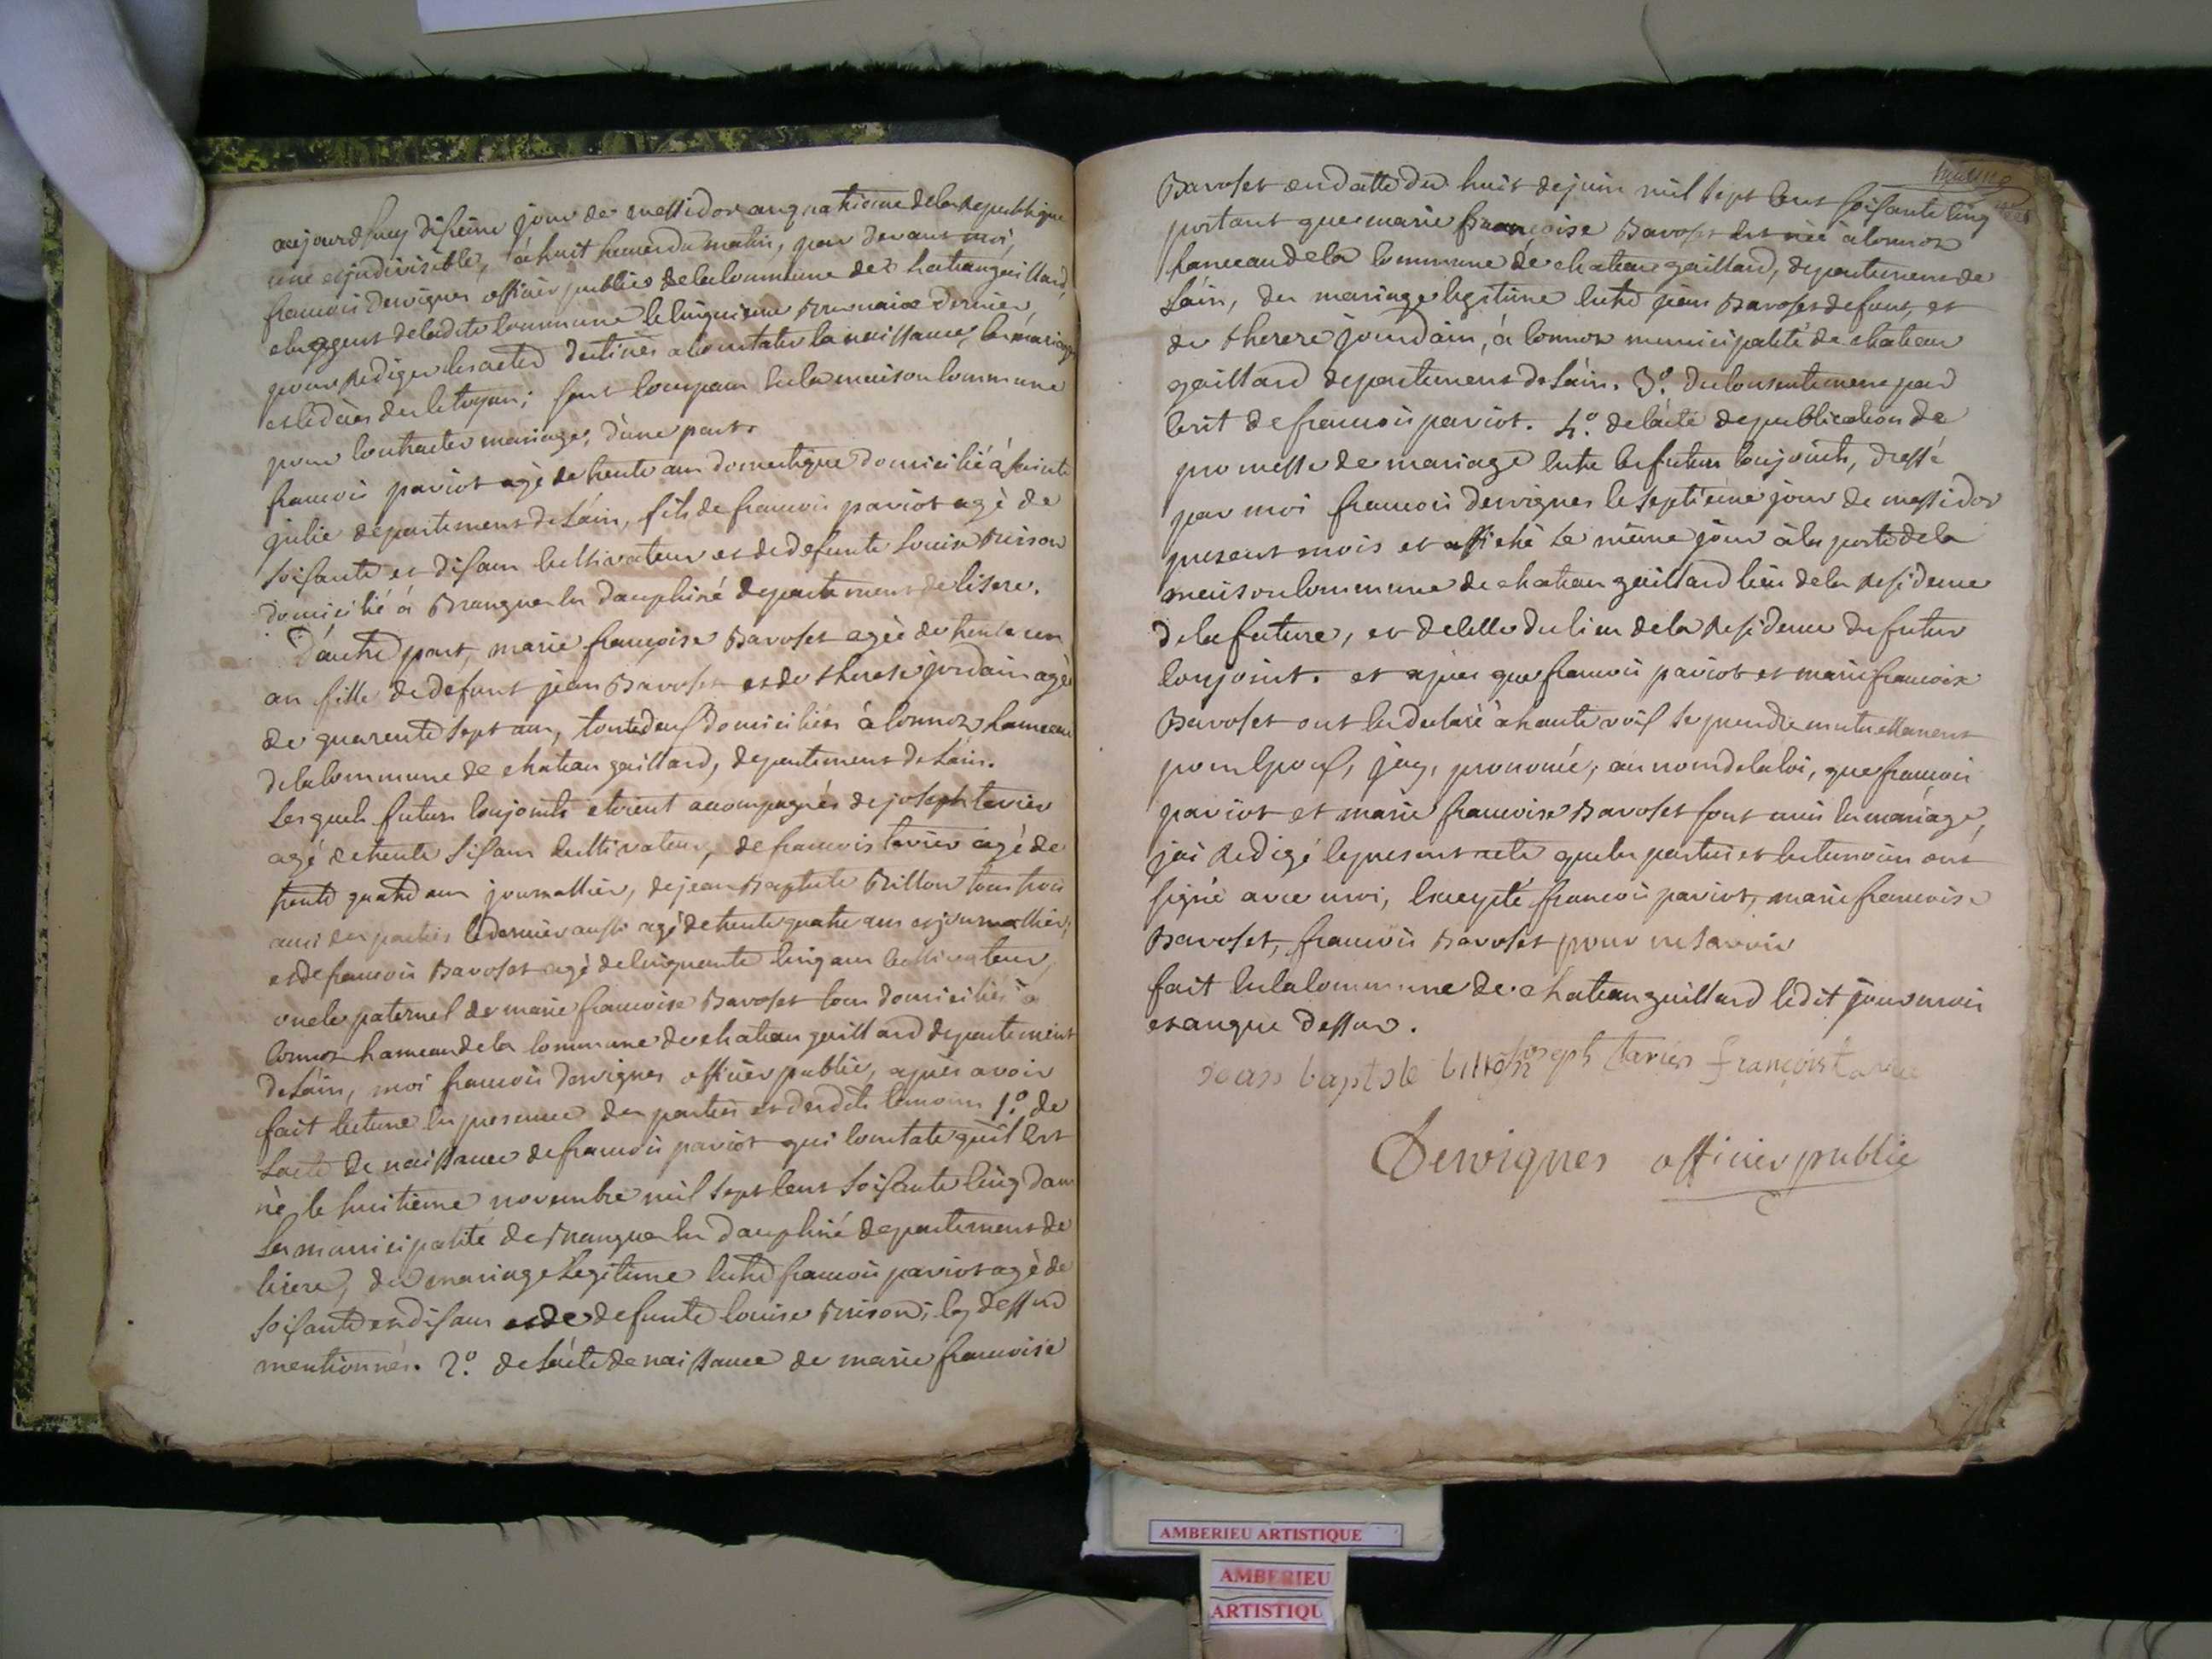 aujourdhuy disieme jour de messidor anquatrieme delarepublique
une etjndivisible, à huit heures du matin, par devant moi,
francois Dervignes officier public delalommune de chateaugaillard,
elu agent deladite lommune le cinquieme brumaire dernier,
pour rediger lesactes destinés aconstater la naissance, les mariages
et le décès des citoyens; sont comparu en la maison commune
pour contracter mariage, d'une part.
francois pariot agé de trente ans domestique domicilié à sainte
julie departement delàin, fils de francois pariot agé de
soisante et dis ans cultivateur et de defunte louise Buison
domicilié à Brangue en dauphiné departement de lisere.
D'autre part, marie francoise Baroset agée de trente un
an fille de defunt jean Baroset et de therese jordain agée
de quarente sept ans, toute deux domiciliées à Connoz hameau
delacommune de chateau gaillard, departement delàin.
lesquels futurs conjoints etoient accompagnés de joseph tavier
agé de trente sis ans cultivateur, de francois tavier agé de
trente quatre ans journallier, de jean Baptiste Billon tous trois
amis des parties le dernier aussi agé de trente quatre ans et journallier;
et de francois Baroset agé de cinquante cinq ans cultivateur,
oncle paternel de marie francoise Baroset tous domiciliés à
Connoz hameau dela commune de chateau gaillard departement
delàin, moi francois Dervignes officier public, après avoir
fait lecture en presence des parties et desdits temoins 1º. de
lacte de naissance de francois pariot qui constate quil est
né le huitieme novembre mil sept cent soisante cinq dans
la municipalité de Brangue en dauphiné departement de
lisere, du mariage legitime entre francois pariot agé de
soisante et dis ans et de defunte louise Buison, cy dessus
mentionnés. 2º. de làcte de naissance de marie francoise
Baroset en datte du huit de juin mil sept cent soisante cinq
portant que marie francoise Baroset est née à connoz
hameau de la commune de chateau gaillard, departement de
làin, du mariage legitime entre jean Baroset defunt, et
de therese jourdain, à connoz municipalité de chateau
gaillard departement de làin. 3º. du consentement par
ecrit de francois pariot. 4º. de làcte de publication de
promesse de mariage entre les futurs conjoints, dressé
par moi francois Dervignes le septième jour de messidor
present mois et affiché le même jour à la porte de la
maison commune de chateau gaillard lieu de la residence
de la future, et de celle du lieu de la residence du futur
conjoint. et après que francois pariot et marie francoise
Baroset ont eu declaré à haute voix se prendre mutuellement
pour epoux, jay, prononcé, au nom de la loi, que francois
pariot et marie francoise Baroset sont unis en mariage,
jai redigé le present acte que les parties et les temoins ont
signé avec moi, excepté francois pariot, marie francoise
Baroset, francois Baroset pour ne savoir
fait en la commune de chateau gaillard ledit jour mois
et an que dessus.
jean baptiste billon joseph tavier françois tavier
Dervignes officier public
AMBERIEU ARTISTIQUE
AMBERIEU
ARTISTIQU